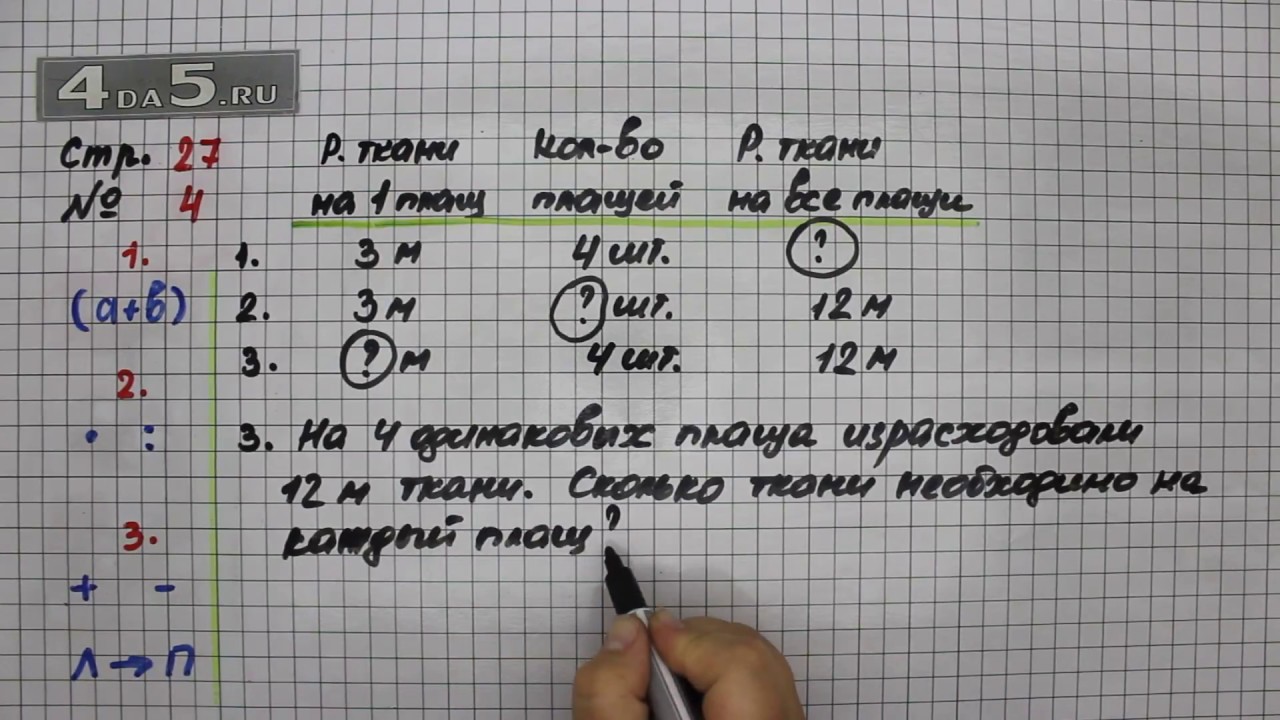 4DA5.RU
Стр. 27
№ 4
Р. ткани Кол-во Р. ткани
на 1 плащ плащей на все плащи
1. 3 м 4 шт. ?
2. 3 м ? шт. 12 м
3. ? м 4 шт. 12 м
3. На 4 одинаковых плаща израсходовали
12 м ткани. Сколько ткани необходимо на
каждый плащ?
1.
(а+в)
2.
· :
3.
+ -
Л → П